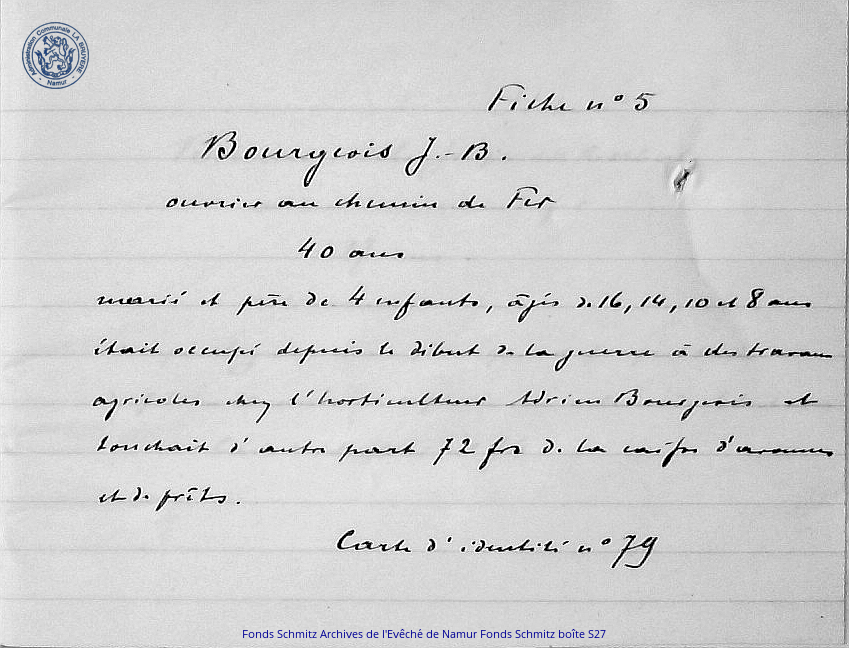 Administration Communale LA BRUYERE
- Namur -
Fiche n° 5
Bourgeois J.-B.
ouvrier au chemin de Fer
40 ans
marié et père de 4 enfants, âgés de 16, 14, 10 et 8 ans
était occupé depuis le début de la guerre à des travaux
agricoles chez l'horticulteur Adrien Bourgeois et
touchait d'autre part 72 frs de la caisse d'avances
et de prêts.
Carte d'identité n° 79
Fonds Schmitz Archives de l'Evêché de Namur Fonds Schmitz boîte S27